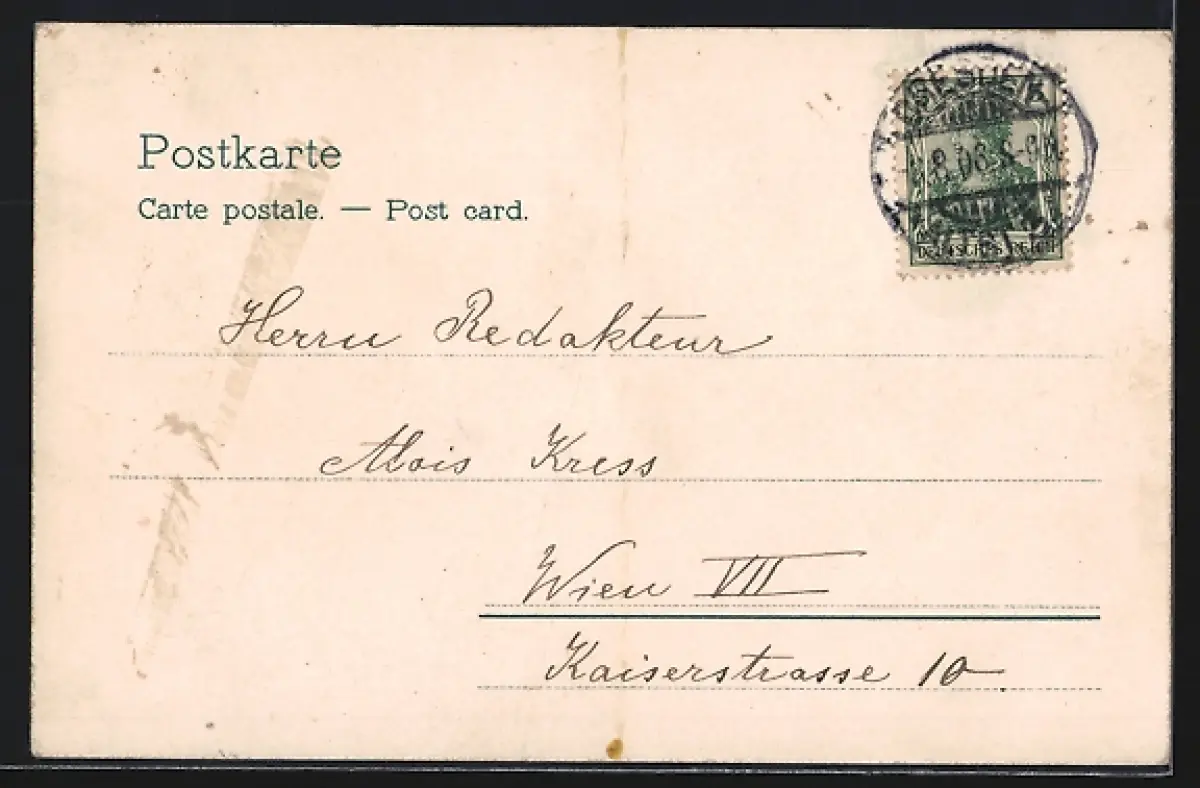 Postkarte
Carte postale. — Post card.
8.08.
DEUTSCHES REICH
Herrn Redakteur
Alois Kress
Wien VII
Kaiserstrasse 10